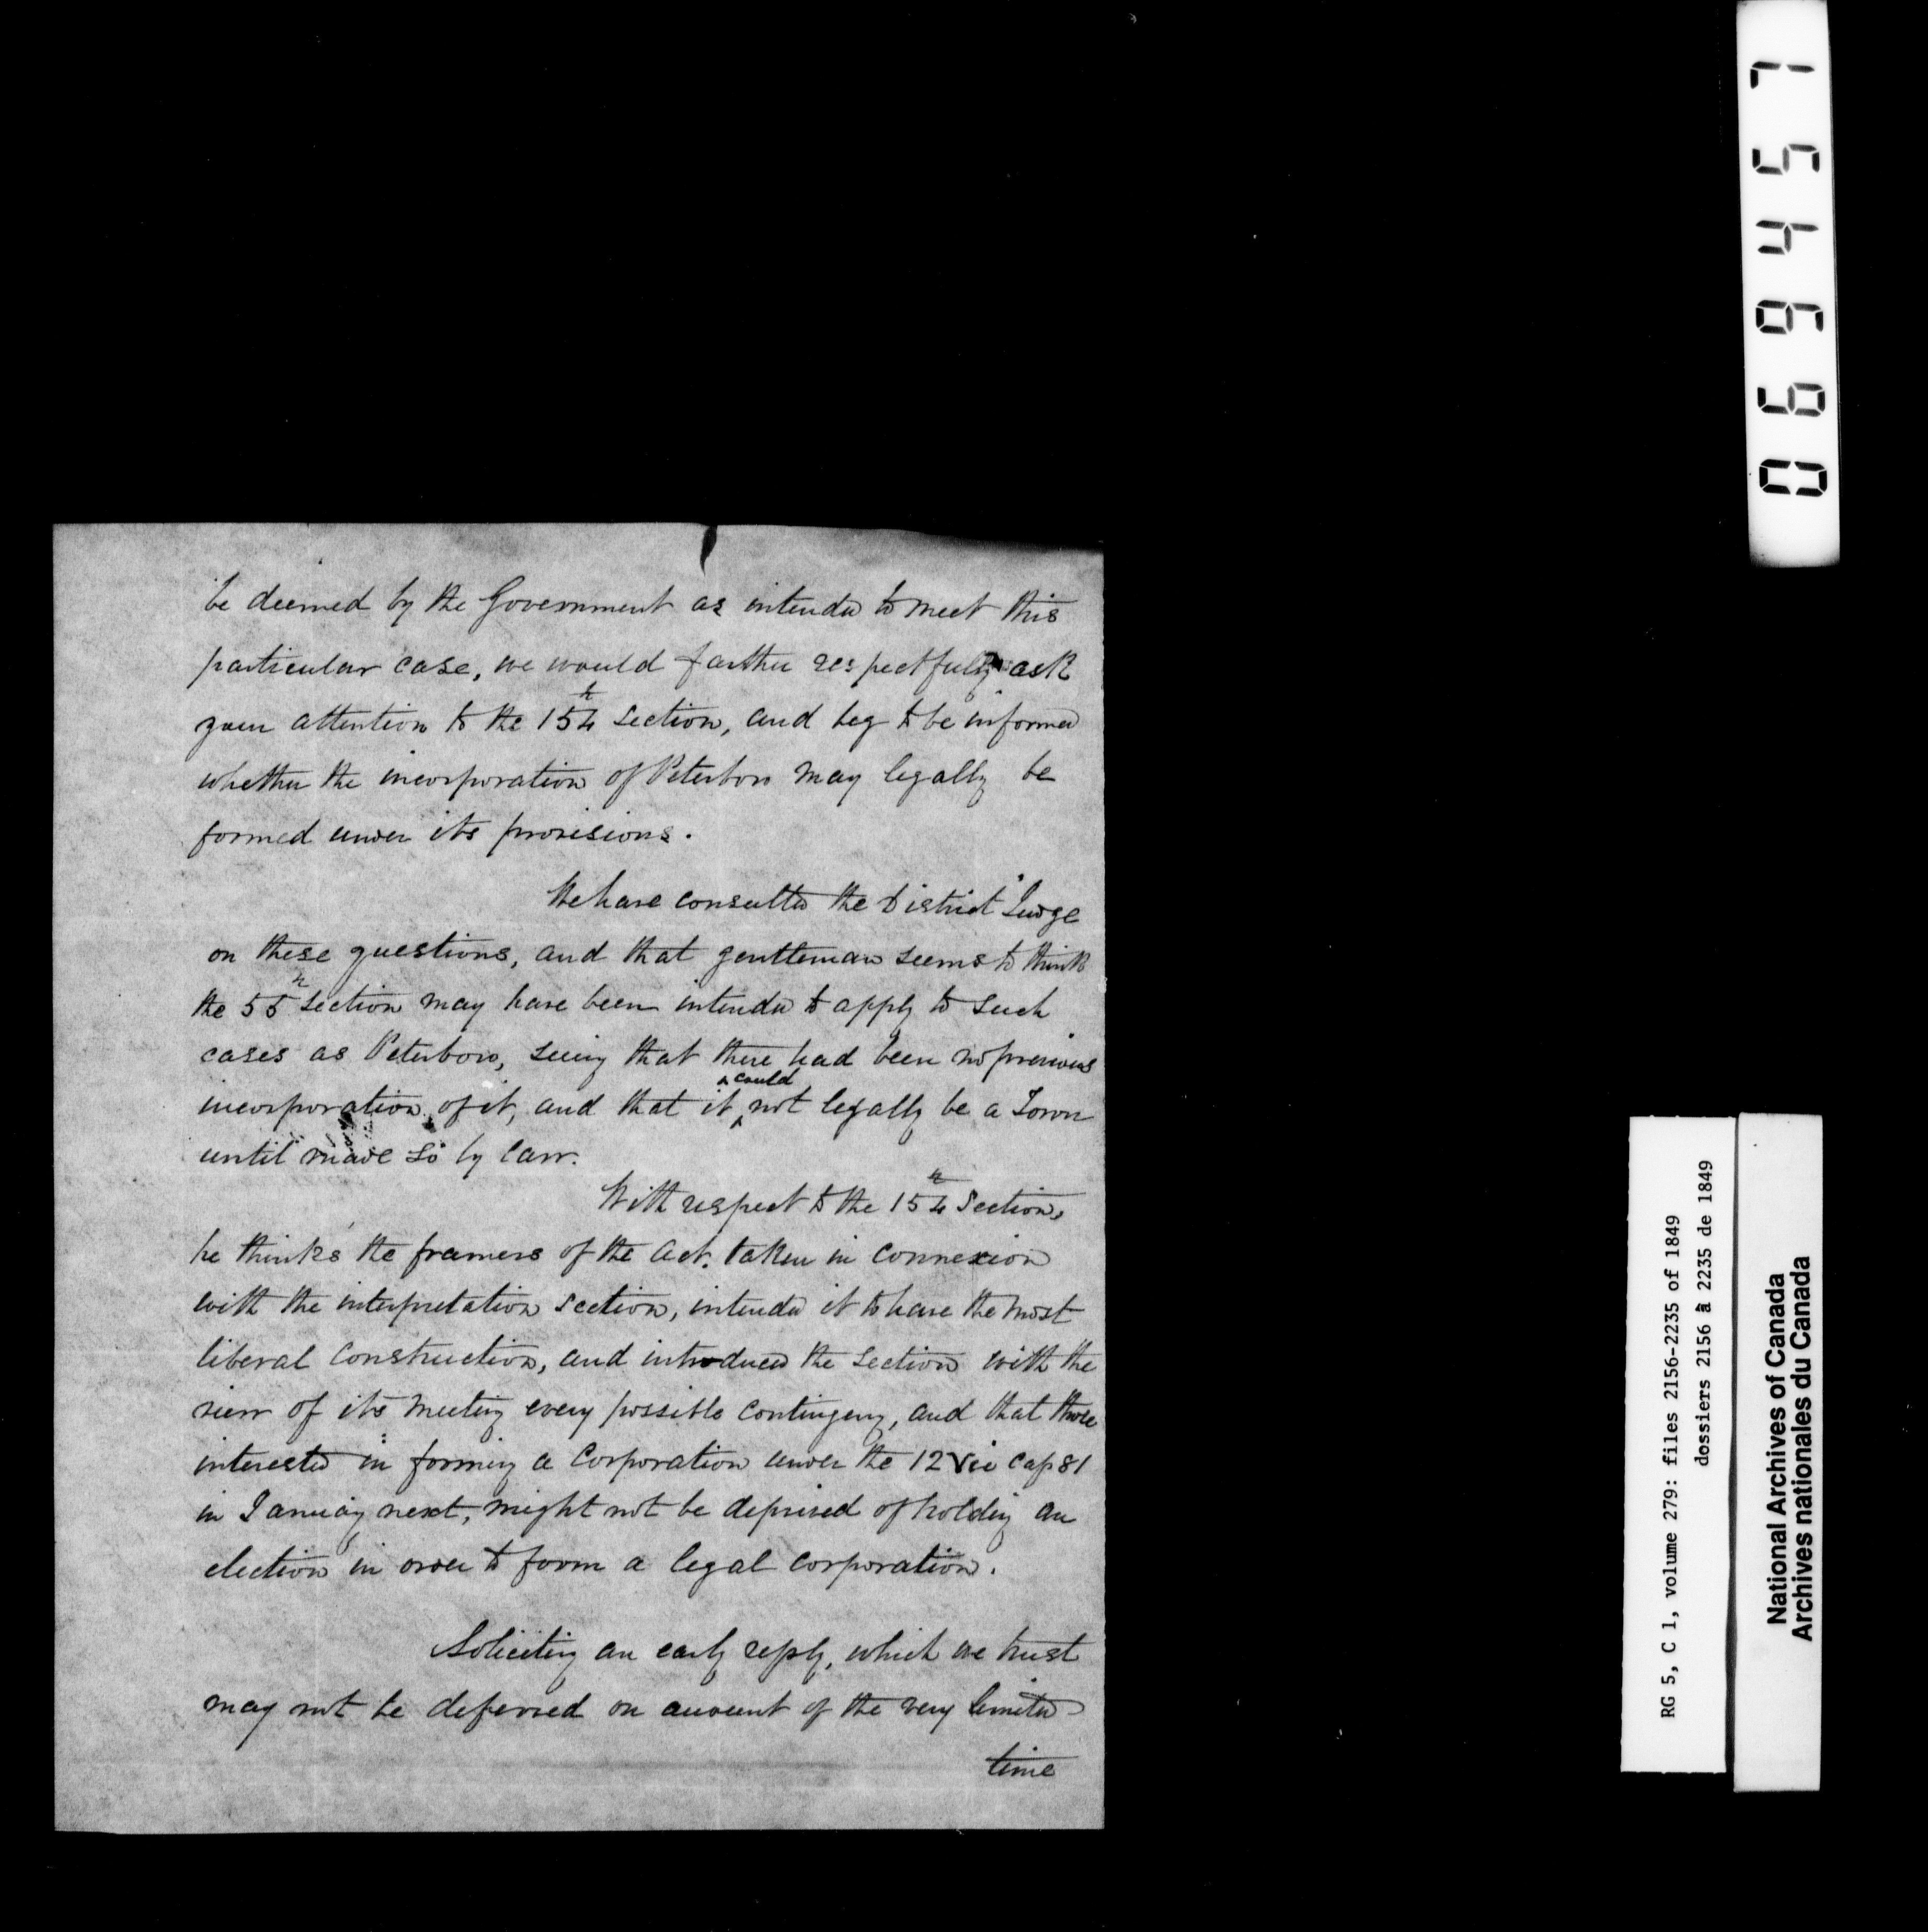 be deemed by the Government as intended to meet this
particular case, we would farther respectfully ask
your attention to the 154th section, and beg to be informed
whether the incorporation of Peterboro may legally be
formed under its provisions.
We have consulted the District Judge
on these questions, and that gentleman seems to think
the 55th section may have been intended to apply to such
cases as Peterboro, seeing that there had been no previous
incorporation of it, and that it could not legally be a Town
until made so by law.
With respect to the 154th Section,
he thinks the framers of the Act, taken in connexion
with the interpretation section, intended it to have the most
liberal construction, and introduced the section with the
view of its meeting every possible contingency, and that those
interested in forming a Corporation under the 12 Vic Cap 81
in January next, might not be deprived of holding an
election in order to form a legal corporation.
Soliciting an early reply, which we trust
may not be deferred on account of the very limited
time
069457
RG 5, C 1, volume 279: files 2156-2235 of 1849
dossiers 2156 à 2235 de 1849
National Archives of Canada
Archives nationales du Canada